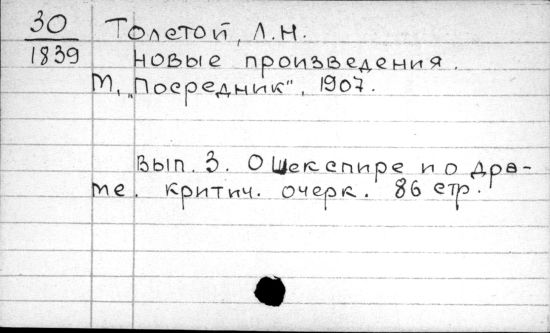 30 Толстой, Л.Н.
1839 Новые произведения.
М, "Посредник", 1907.
Вып. 3. О Шекспире и о дра-
ме. критич. очерк. 86 стр.